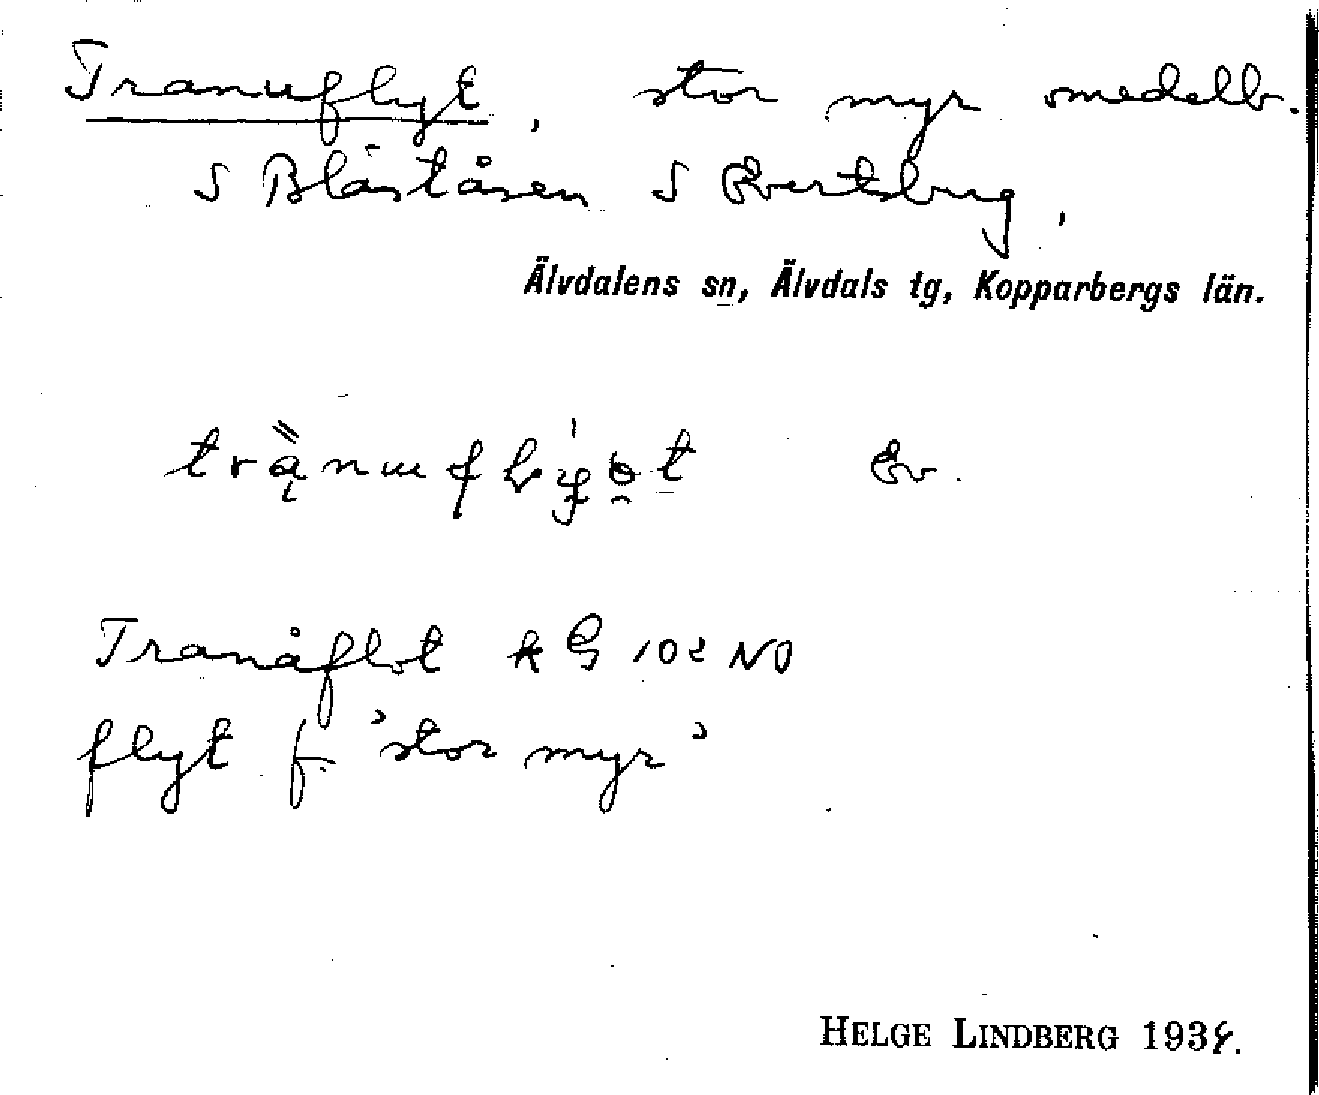 Tranuflyt, stor myr omedelb.
S Blåståsen S Evertsberg,
Älvdalens sn, Älvdals tg, Kopparbergs län.
Ev.
Tranåflot k G 102 NO
flyt f. 'stor myr'
HELGE LINDBERG 193